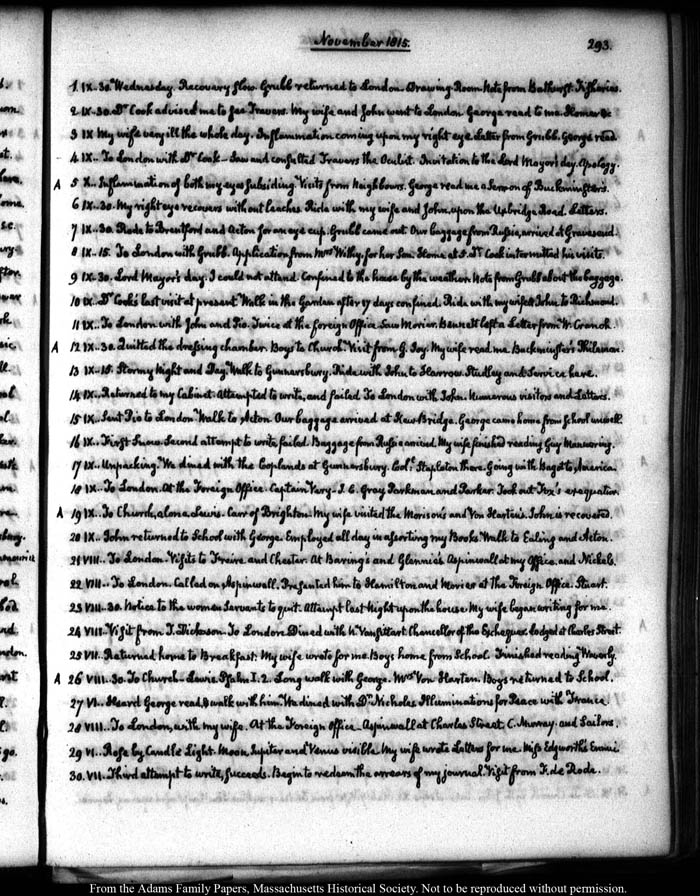 November 1815.
293.
1 IX. 30. Wednesday. Recovery slow. Grubb returned to London. Drawing Room Note from Bathurst. Fisheries.
2 IX. 30. Dr Cook advised me to see Travers. My wife and John went to London. George read to me. Homer &c
3 IX My wife very ill the whole day. Inflammation coming upon my right eye. Letter from Grubb. George read.
4 IX.. To London with Dr Cook. Saw and consulted Travers the Oculist. Invitation to the Lord Mayor's day. Apology.
A 5 X.. Inflammation of both my eyes subsiding. Visits from Neighbours. George read me a Sermon of Buckminster's.
6 IX. 30. My right eye recovers without leaches. Ride with my wife and John, upon the Uxbridge Road. Letters.
7 IX.. 30. Rode to Brentford and Acton for an eye cup. Grubb came out. Our baggage from Russia, arrived at Gravesend.
8 IX. 15. To London with Grubb. Application from Mrs Wilky, for her Son. Home at 5. Dr Cook intermitted his visits.
9 IX. 30. Lord Mayor's day. I could not attend. Confined to the house by the weather. Note from Grubb about the baggage.
10 IX. Dr Cook's last visit at present. Walk in the Garden after 17 days confined. Ride with my wife & John to Richmond.
11 IX.. To London with John and Pio. Twice at the foreign Office. Saw Morier. Bennett left a Letter from W. Cranch.
A 12 IX. 30. Quitted the dressing chamber. Boys to Church. Visit from G. Joy. My wife read me Buckminster's Philemon.
13 IX. 15. Stormy Night and Day. Walk to Gunnersbury. Ride with John to Harrow. Studley and Service here.
14 IX.. Returned to my Cabinet. Attempted to write, and failed. To London with John. Numerous visitors and Letters.
15 IX. Sent Pio to London. Walk to Acton. Our baggage arrived at Kew Bridge. George came home from School unwell.
16 IX.. First Snow. Second attempt to write, failed. Baggage from Russia arrived. My wife finished reading Guy Mannering.
17 IX.. Unpacking. We dined with the Coplands at Gunnersbury. Coll Stapleton there. Going with Bagot to America.
18 IX.. To London. At the Foreign Office. Captain Vary. J. C. Gray Parkman and Parker. Took out Fox's exequatur.
A 19 IX. To Church, alone. Lewis. Carr of Brighton. My wife visited the Morison's and Von Harten's. John is recovered.
20 IX. John returned to School with George. Employed all day in assorting my Books. Walk to Ealing and Acton.
21 VIII.. To London. Visits to Freire and Chester. At Baring's and Glennie's. Aspinwall at my Office. and Nickels.
22 VIII.. To London. Called on Aspinwall. Presented him to Hamilton and Morier at the Foreign Office. Stuart.
23 VIII. 30. Notice to the women Servants to quit. Attempt last Night upon the house. My wife began writing for me.
24 VIII. Visit from J. Dickason. To London. Dined with N. Vansittart. Chancellor of the Exchequer. Lodged at Charles Street.
25 VII. Returned home to Breakfast. My wife wrote for me. Boys home from School. Finished reading Waverly.
A 26 VIII. 30. To Church. Lewis. Psalm 1. 2. Long walk with George. Mrs Von Harten. Boys returned to School.
27 VI.. Heard George read, & walk with him. We dined with Dr Nicholas. Illuminations for Peace with France.
28 VIII.. To London, with my wife. At the Foreign Office. Aspinwall at Charles Street. C. Murray. and Sailors.
29 VI.. Rose by Candle Light. Moon, Jupiter and Venus visible. My wife wrote Letters for me. Miss Edgworth's Ennui.
30. VII.. Third attempt to write, succeeds. Begin to redeem the arrears of my journal. Visit from F. de Rode.
From the Adams Family Papers, Massachusetts Historical Society. Not to be reproduced without permission.